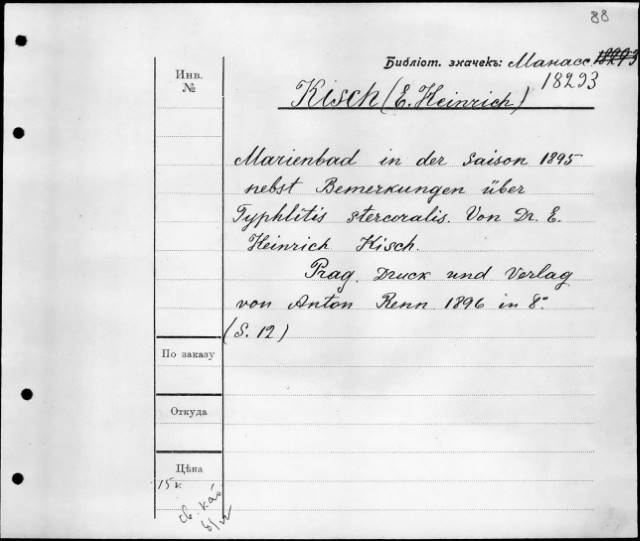 88
Библіот. значекъ: Манасс. 18293
18293
Инв.
№
Kisch (E. Heinrich)
Marienbad in der Saison 1895
nebst Bemerkungen über
Typhlitis stercoralis. Von Dr. E.
Heinrich Kisch.
Prag. Druck und Verlag
von Anton Renn 1896 in 8º.
(S. 12)
По заказу
Откуда
Цѣна
15 к